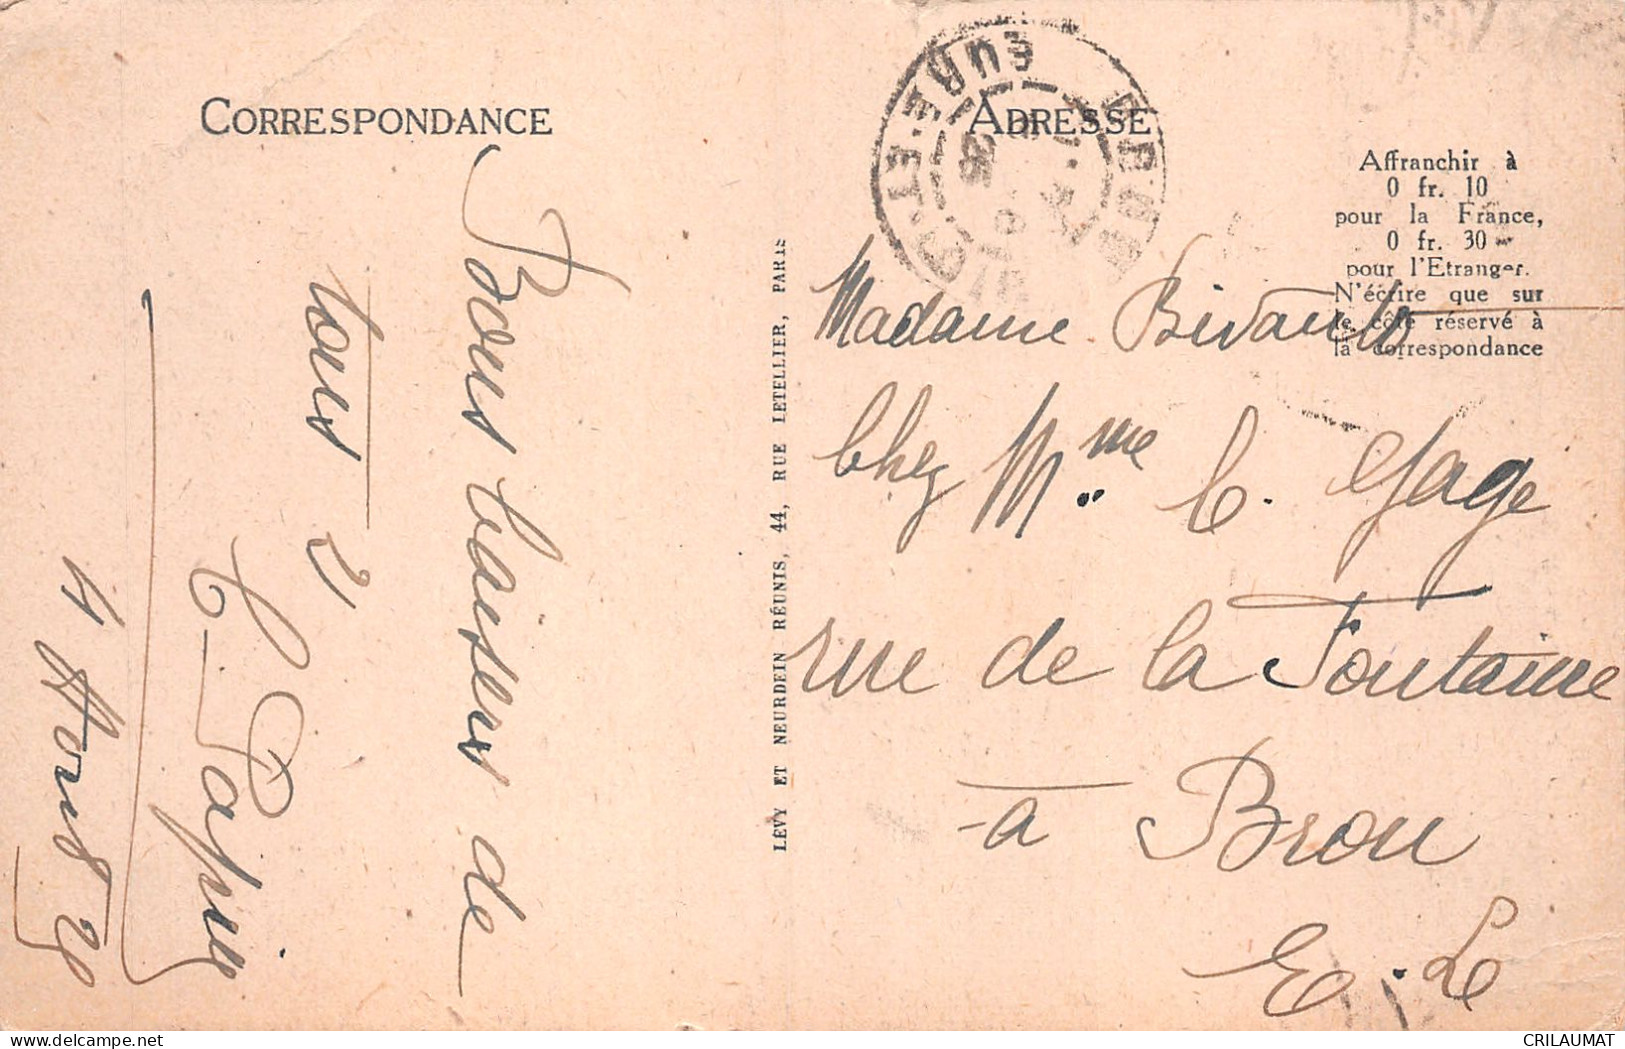 CORRESPONDANCE
Bons baisers de
tous 2
C. Papin
LÉVY ET NEURDEIN RÉUNIS, 44, RUE LETELLIER, PARIS
ADRESSE
EURE-ET-
25
Affranchir à
0 fr. 10
pour la France,
0 fr. 30
pour l'Etranger.
N'écrire que sur
le côté réservé à
la correspondance
Madame Bivault
Chez Mme C. Gage
rue de la Fontaine
à Brou
E. L.
CRILAUMAT